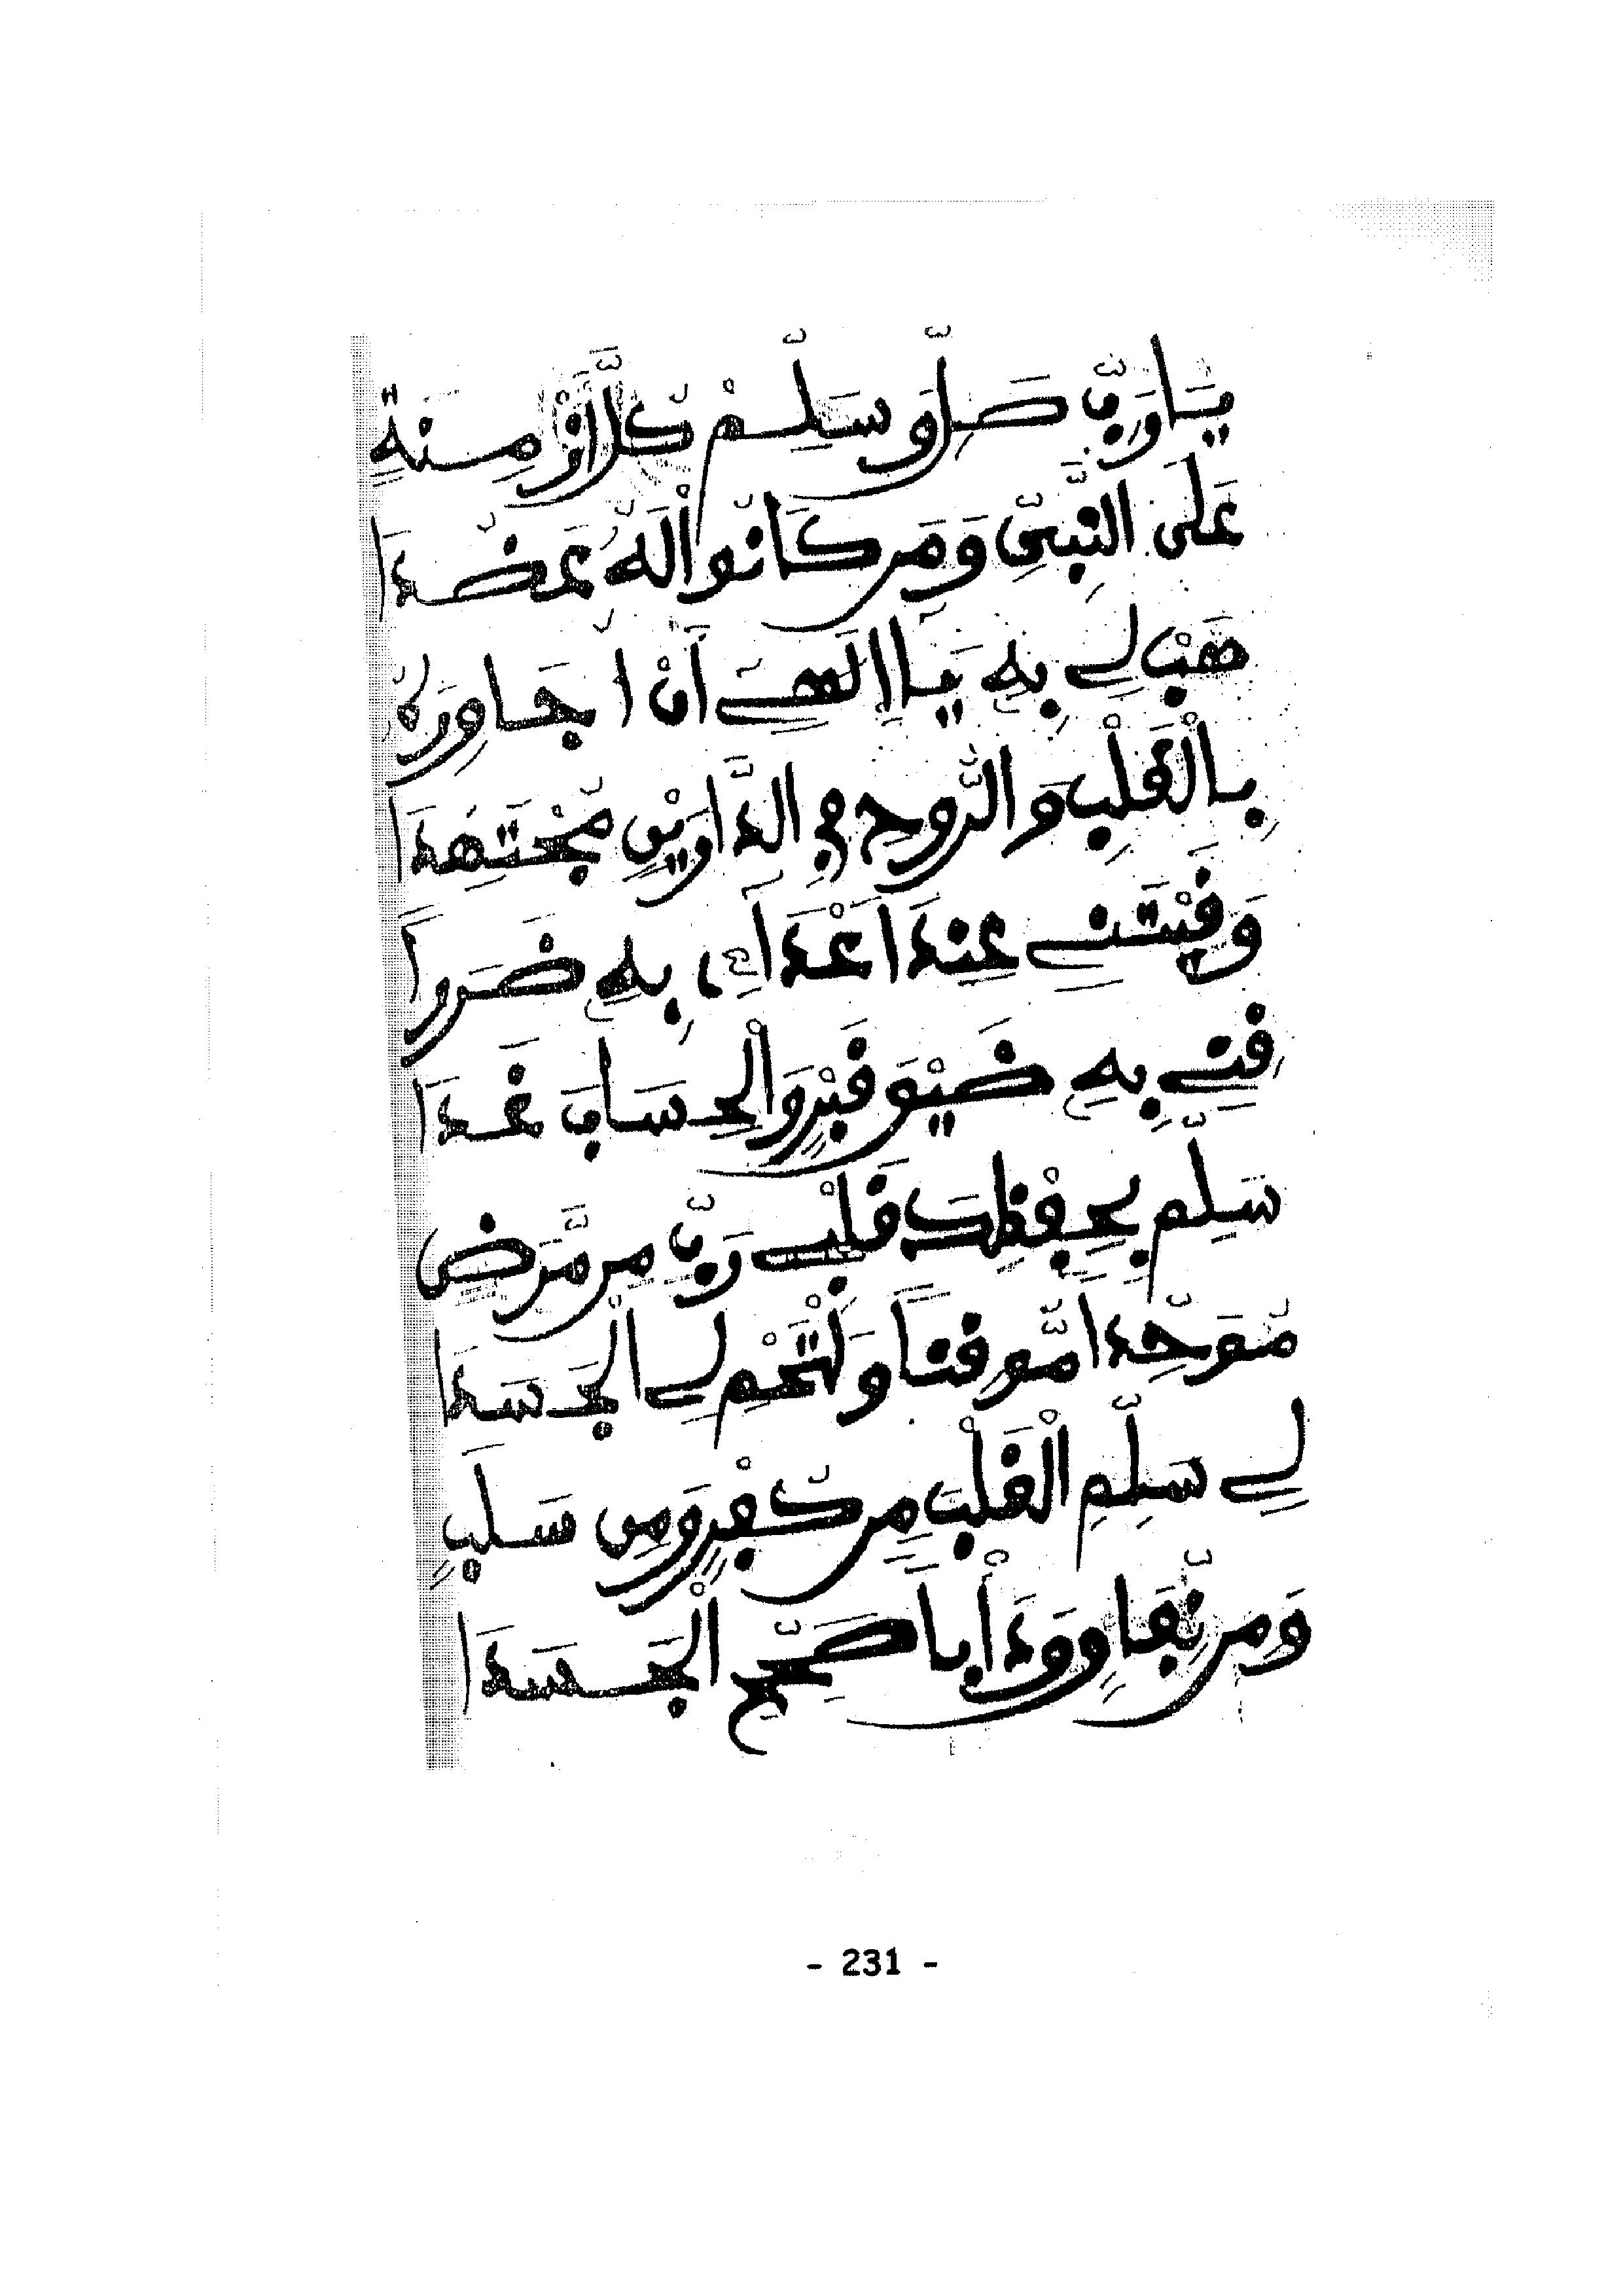 يَا رَبِّ صَلِّ وَسَلِّمْ كُلَّ أَزْمِنَةٍ
عَلَى النَّبِيِّ وَمَن كَانُوا لَهُ عَضُدَا
هَبْ لِي بِهِ يَا إِلَهِي أَنْ أُجَاوِرَهُ
بِالْقَلْبِ وَالرُّوحِ فِي الدَّارَيْنِ مُجْتَهِدَا
وَقَيْتَنِي عِنْدَ أَعْدَائِي بِهِ ضَرَرًا
قِنِي بِهِ ضَيْقَ قَبْرٍ وَالْحِسَابَ غَدَا
سَلِّم بِحِفْظِكَ قَلْبِي رَبِّ مِن مَّرَضٍ
مُوَحِّدًا مُّوقِنًا وَلْتَحْمِ لِي الْجَسَدَا
لِي سَلِّمِ الْقَلْبَ مِن كُفْرٍ وَمِن سَلَبٍ
وَمِن نِّفَاقٍ وَدَأْبًا صَحِّحِ الْجَسَدَا
- 231 -